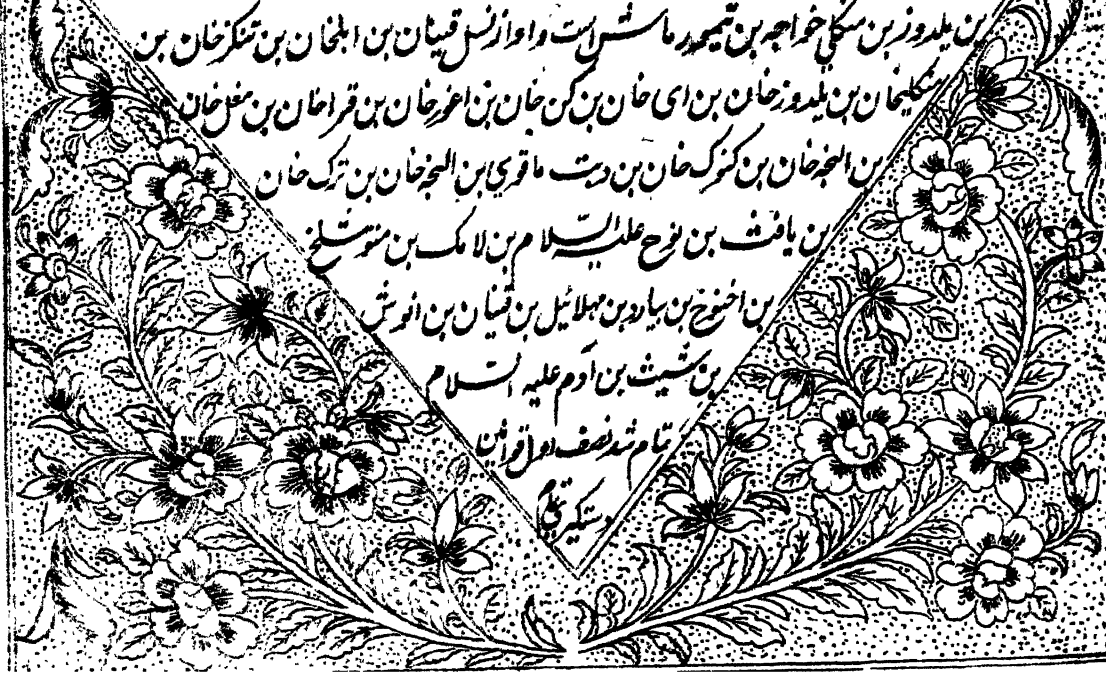 بن یلدوز بن منگلی خواجه بن تیمور تاش است و او از نسل قیان بن ایلخان بن تنگز خان بن
منگلیخان بن یلدوز خان بن ای خان بن کن خان بن اغوز خان بن قرا خان بن مغل خان
بن النجه خان بن کیوک خان بن دیب باقوی بن النجه خان بن ترک خان
بن یافث بن نوح علیه السلام بن لامک بن متوشلخ
بن اخنوخ بن یارد بن مهلائیل بن قینان بن انوش
بن شیث بن آدم علیه السلام
تمام شد نصف اول قوانین
دستگیری